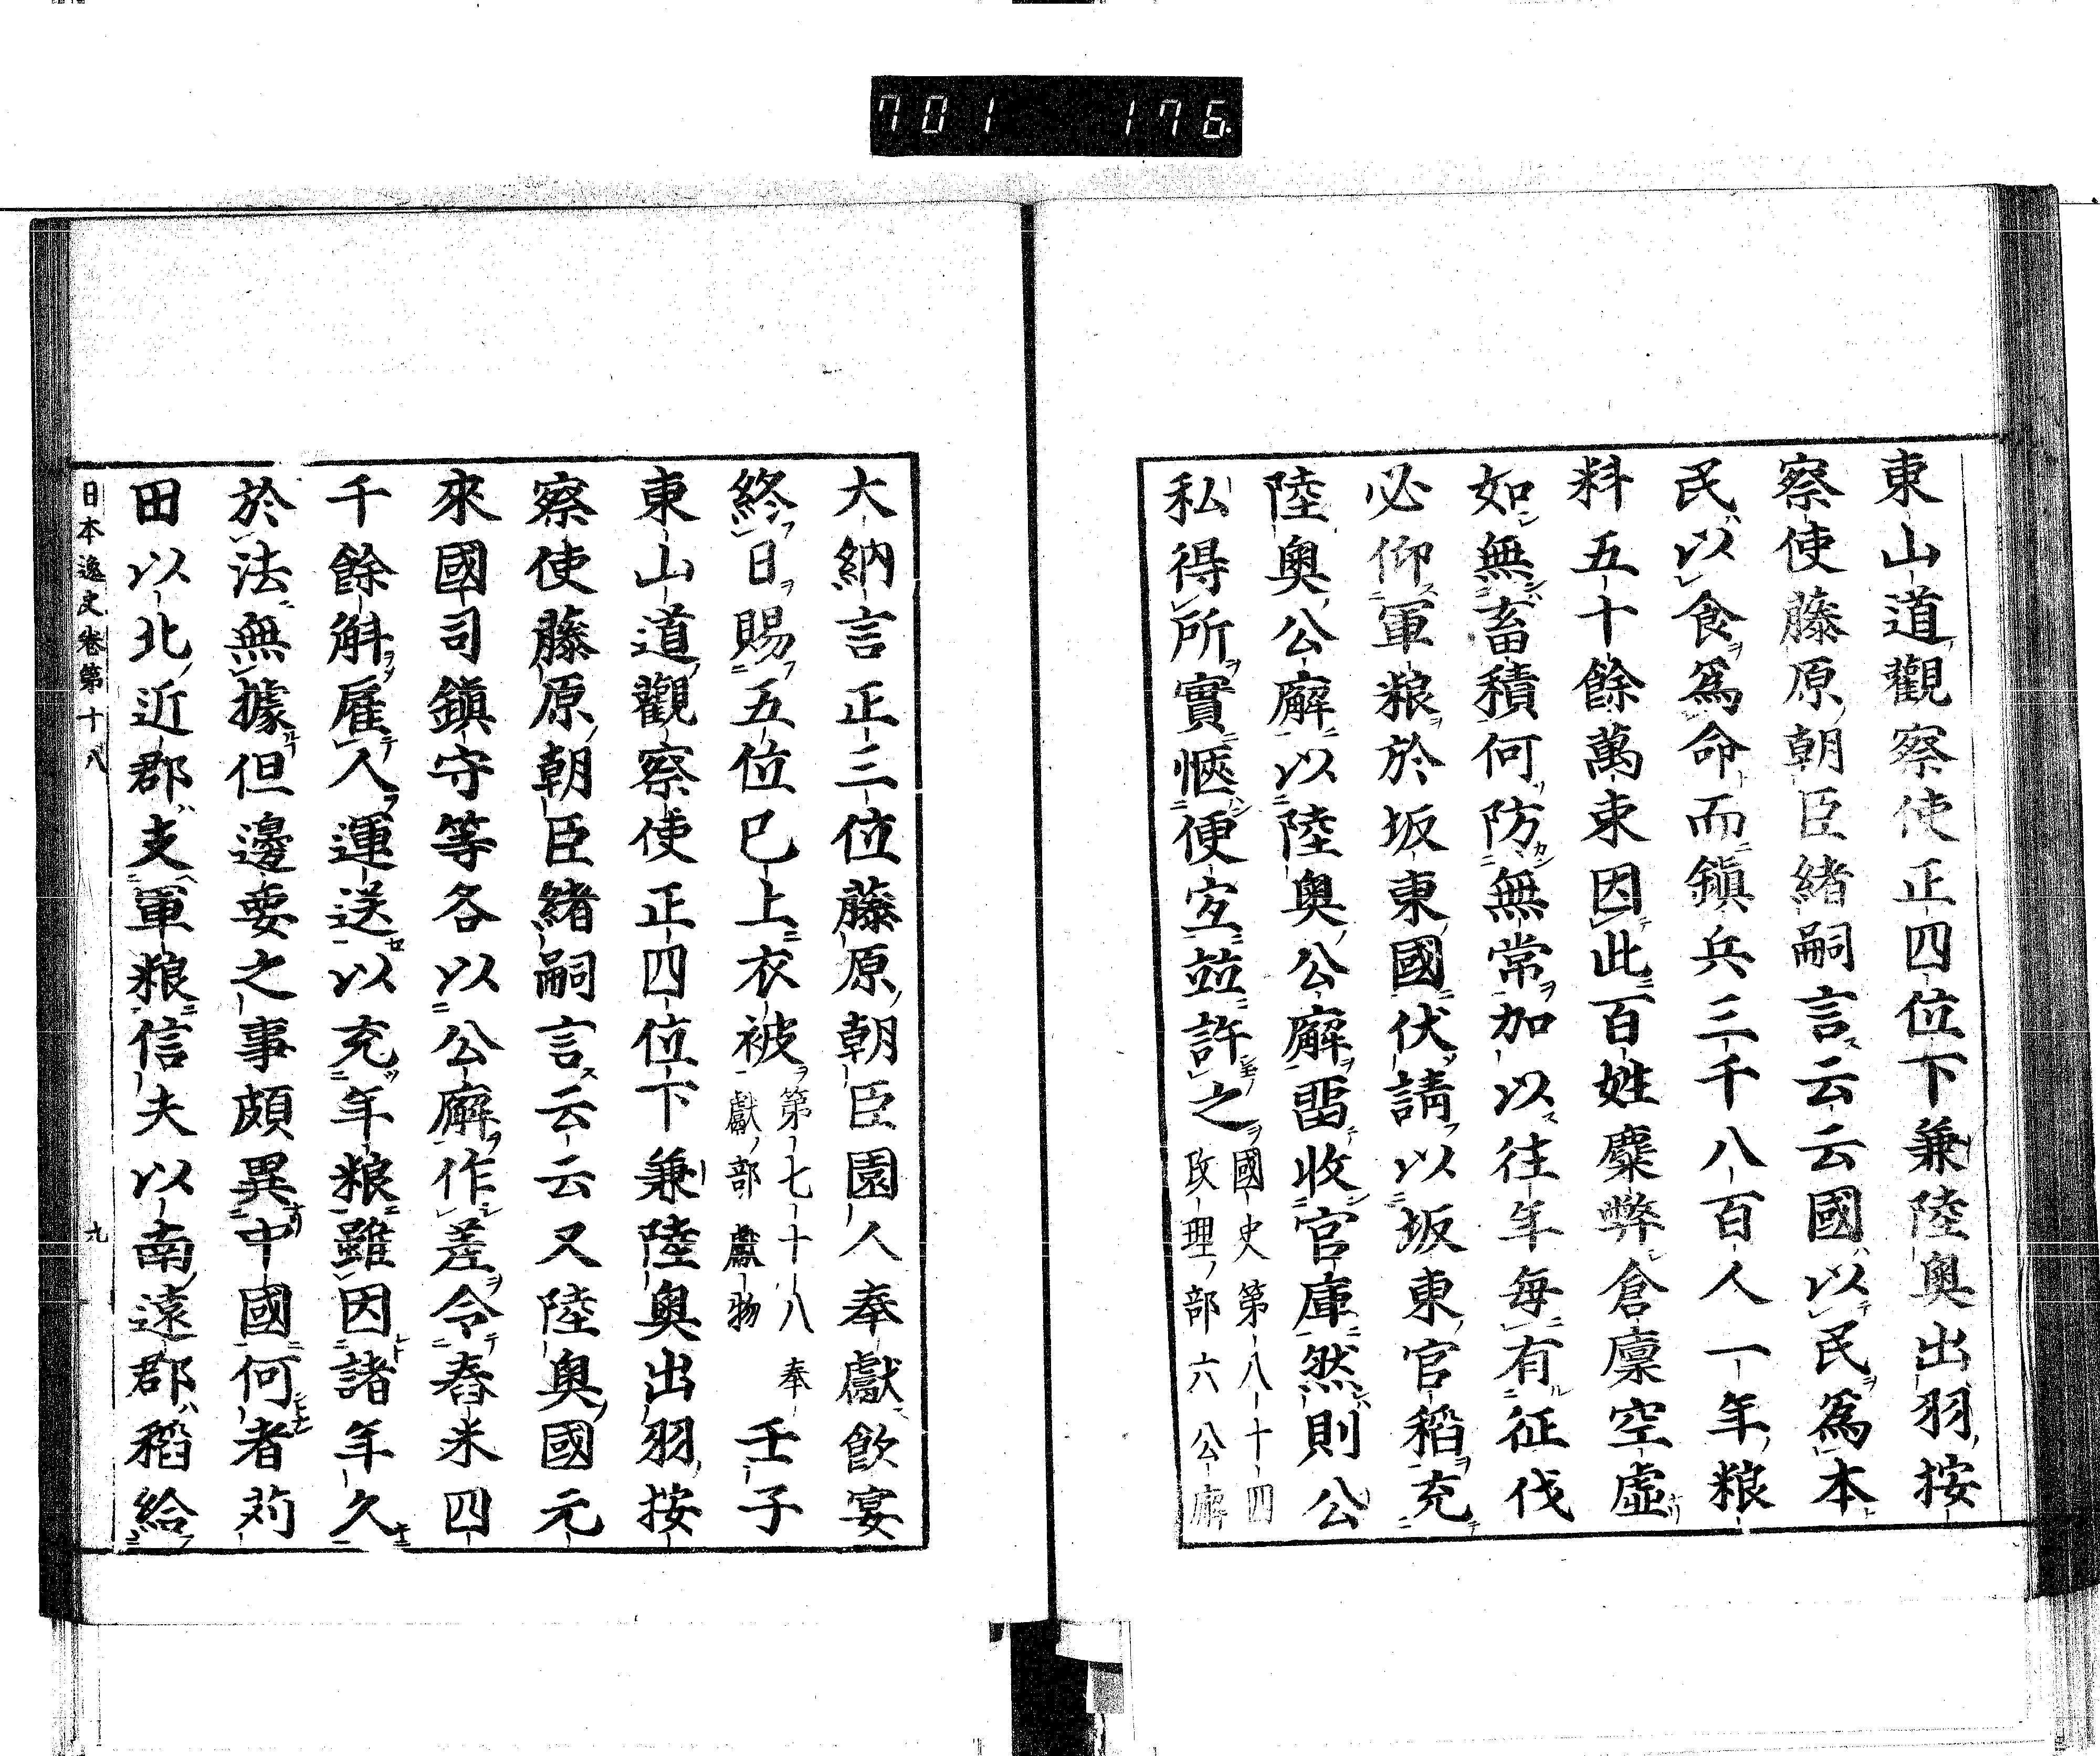 701 176
東山道觀察使正四位下兼陸奧出羽按
察使藤原朝臣緒嗣言云云國以民爲本
民以食爲命而鎭兵三千八百人一年粮
料五十餘萬束因此百姓麋弊倉廩空虛
如無畜積何防無常加以徃年每有征伐
必仰軍粮於坂東國伏請以坂東官稻充
陸奧公廨以陸奧公廨畱收官庫然則公
私得所實愜便宜竝許之國史第八十四
政理部六 公廨
大納言正三位藤原朝臣園人奉獻飮宴
終日賜五位已上衣被第七十八 奉
獻部 獻物 壬子
東山道觀察使正四位下兼陸奧出羽按
察使藤原朝臣緒嗣言云云又陸奧國元
來國司鎭守等各以公廨作差令舂米四
千餘斛雇人運送以充年粮雖因諸年久
於法無據但邊要之事頗異中國何者苅
田以北近郡支軍粮信夫以南遠郡稻給
日本逸史卷第十八 九